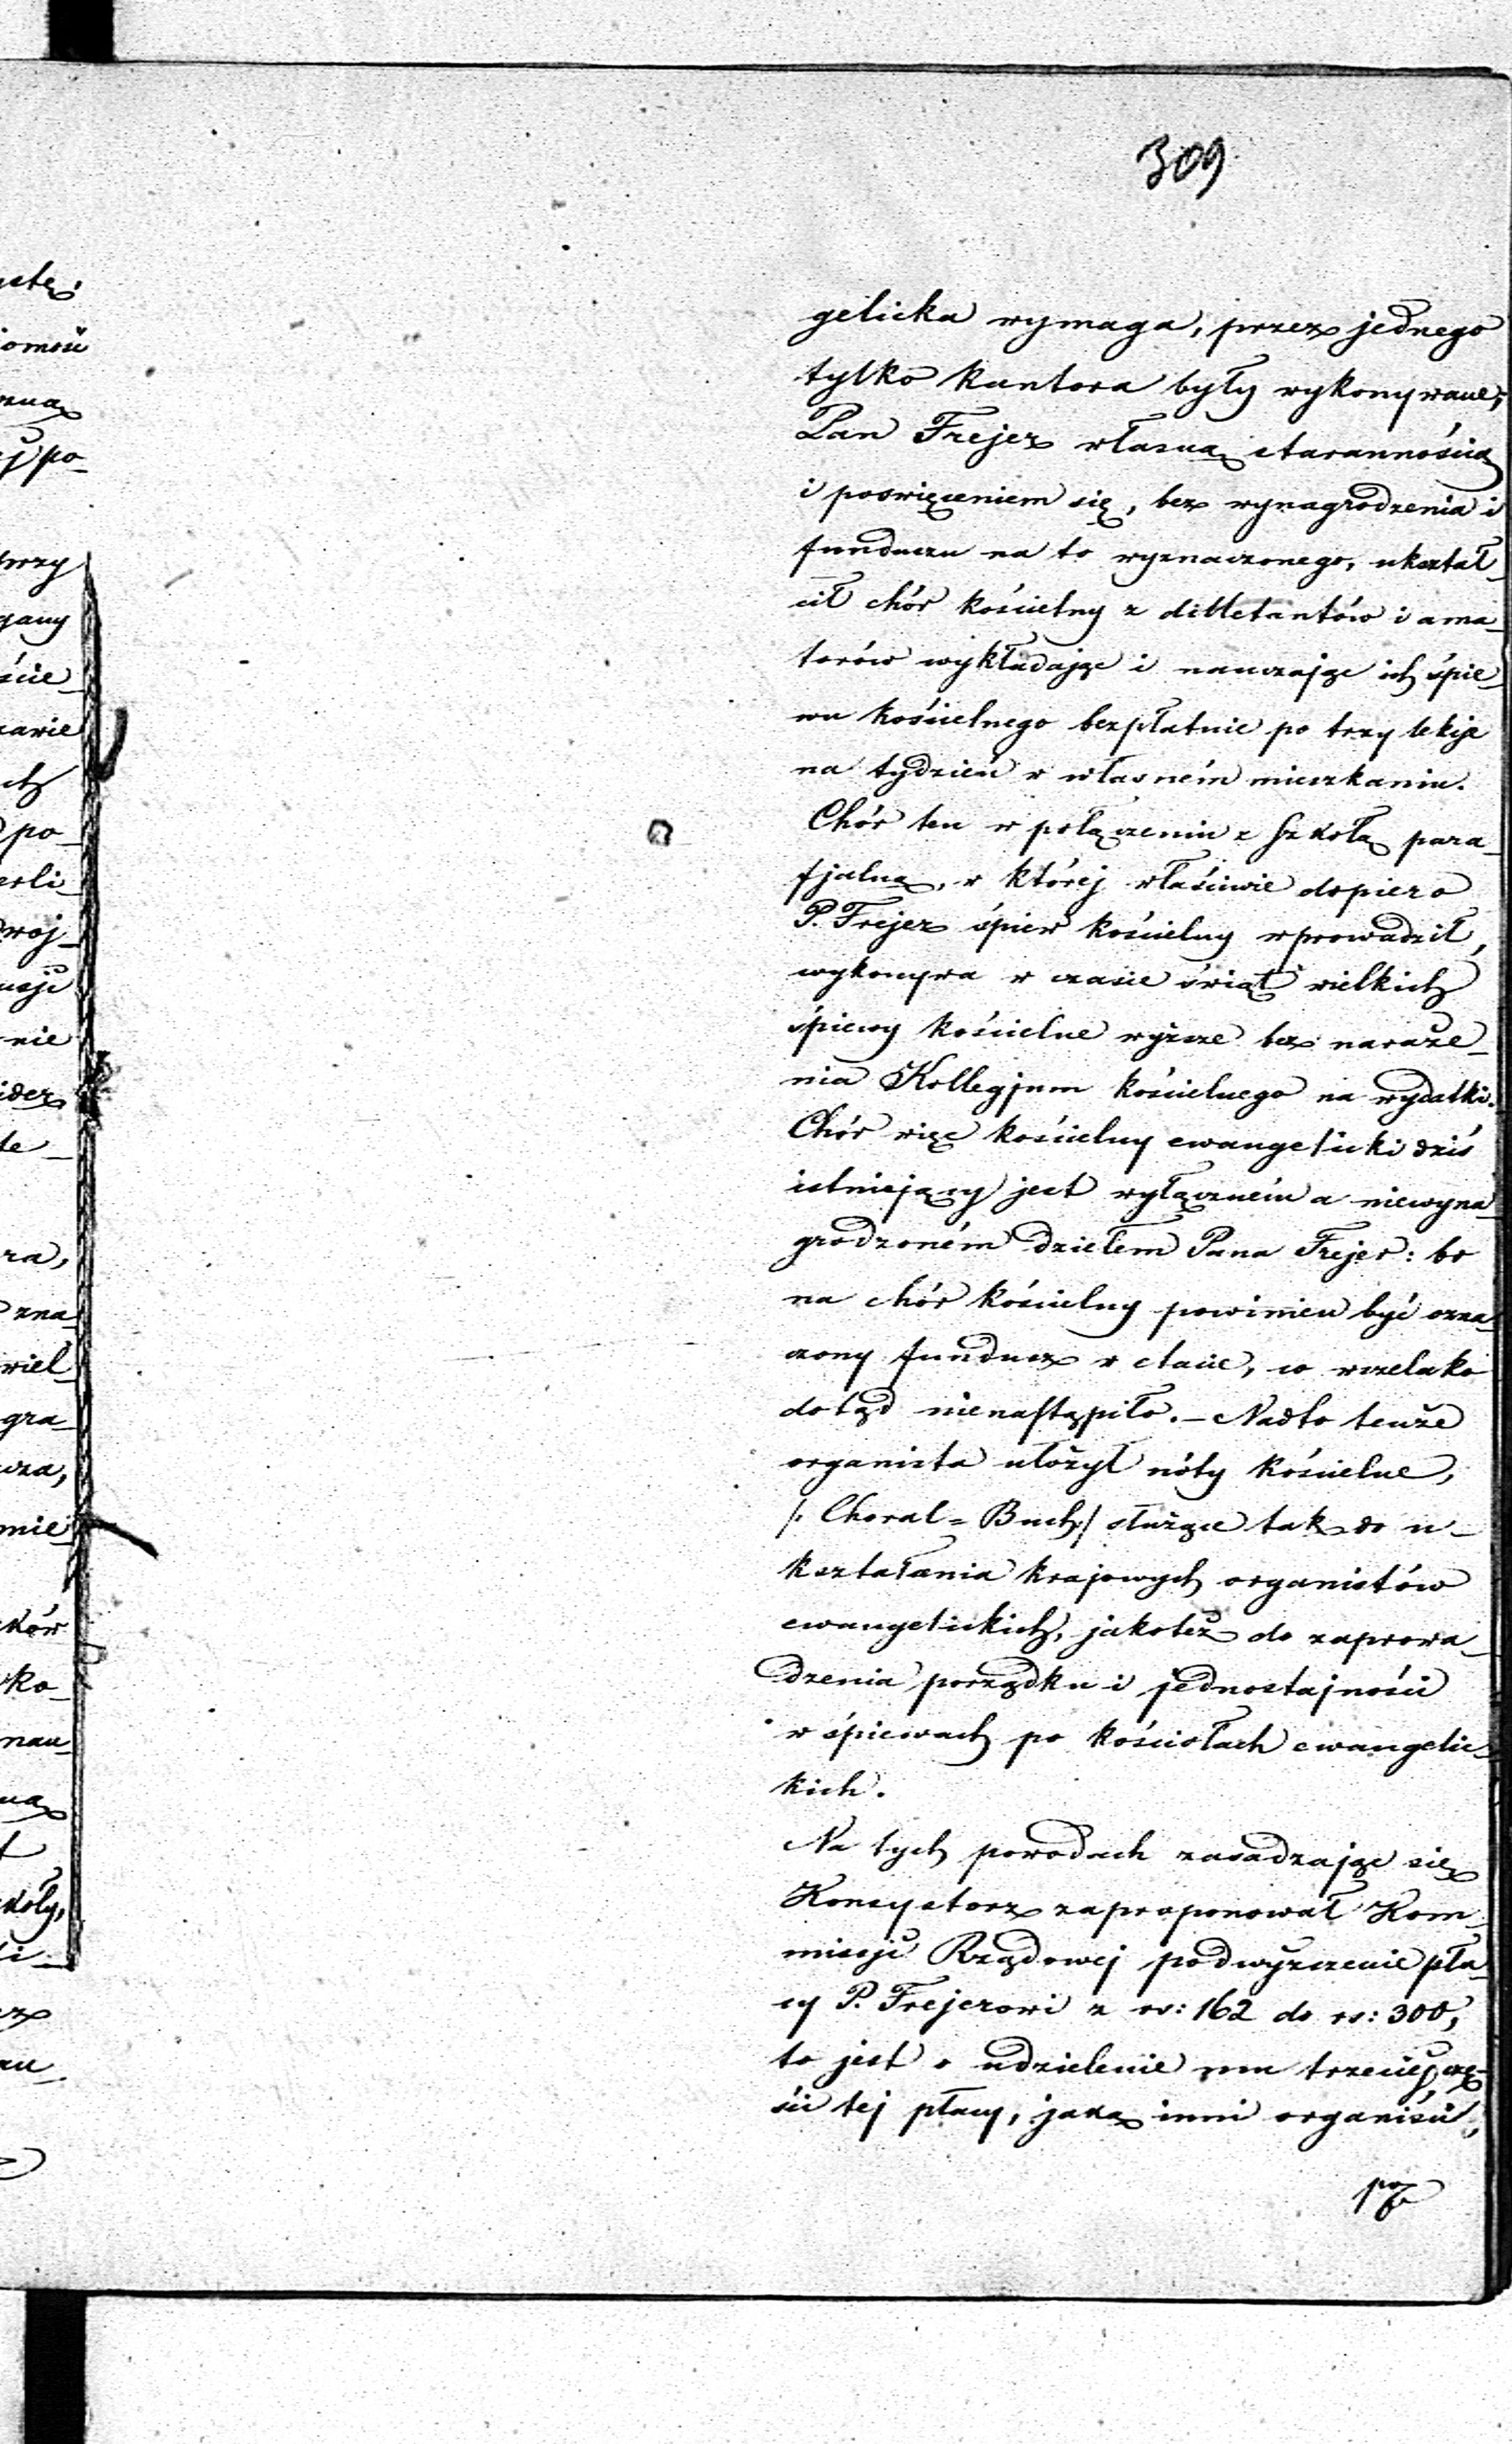 309
gelicka wymaga, przez jednego
tylko kantora były wykonywane;
Pan Frejer własną starannością
i poswięceniem się, bez wynagrodzenia i
funduszu na to wyznaczonego, ukształ_
cił chór kościelny z dilletantów i ama_
torów wykładając i nauczając ich śpie_
wu kościelnego bezpłatnie po trzy lekcje
na tydzień w własném mieszkaniu.
Chór ten w połączeniu z Szkołą para_
fjalną, w której właściwie dopiero
P. Frejer śpiew kościelny wprowadził,
wykonywa w czasie świąt wielkich
śpiewy kościelne wyższe bez naraże_
nia Kollegjum kościelnego na wydatki.
Chór więc kościelny ewangelicki dziś
istniejący jest wyłączném a niewyna_
grodzoném dziełem Pana Frejer: bo
na chór kościelny powinien być ozna_
czony fundusz w etacie, co wszelako
dotąd nienastąpiło. – Nadto tenże
organista ułożył nóty kościelne,
/: Choral = Buch :/ służące tak do u_
kształcenia krajowych organistów
ewangelickich, jakoteż do zaprowa_
dzenia porządku i jednostajności
w śpiewach po kościołach ewangelic_
kich.
Na tych powodach zasadzając się
Konsystorz zaproponował Kom_
missji Rządowej podwyższenie pła_
cy P. Frejerowi z rs: 162 do rs: 300,
to jest o udzielenie mu trzeciej czę_
ści tej płacy, jaką inni organiści,
ystę.
po_
przy
gany
ście_
ch
po_
woj_
nie
idez
te_
ra,
zna_
wiel_
gra_
cza,
mie_
ków
ko_
nau_
ną
koły,